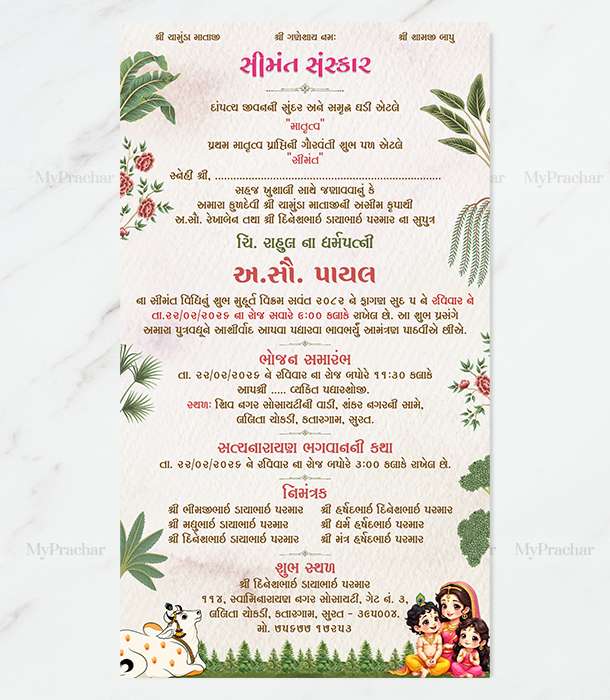 શ્રી ચામુંડા માતાજી શ્રી ગણેશાય નમઃ શ્રી શામજી બાપુ
સીમંત સંસ્કાર
દાંપત્ય જીવનની સુંદર અને સમૃદ્ધ ઘડી એટલે
"માતૃત્વ"
પ્રથમ માતૃત્વ પ્રાપ્તિની ગૌરવંતી શુભ પળ એટલે
"સીમંત"
સ્નેહી શ્રી, ..........................................................
સહજ ખુશાલી સાથે જણાવવાનું કે
અમારા કુળદેવી શ્રી ચામુંડા માતાજીની અસીમ કૃપાથી
અ.સૌ. રેખાબેન તથા શ્રી દિનેશભાઈ ડાયાભાઈ પરમાર ના સુપુત્ર
ચિ. રાહુલ ના ધર્મપત્ની
અ.સૌ. પાયલ
ના સીમંત વિધિનું શુભ મુહૂર્ત વિક્રમ સવંત ૨૦૮૨ ને ફાગણ સુદ ૫ ને રવિવાર ને
તા.૨૨/૦૨/૨૦૨૬ ના રોજ સવારે ૬:૦૦ કલાકે રાખેલ છે. આ શુભ પ્રસંગે
અમારા પુત્રવધૂને આશીર્વાદ આપવા પધારવા ભાવભર્યું આમંત્રણ પાઠવીએ છીએ.
ભોજન સમારંભ
તા. ૨૨/૦૨/૨૦૨૬ ને રવિવાર ના રોજ બપોરે ૧૧:૩૦ કલાકે
આપશ્રી ..... વ્યકિત પધારશોજી.
સ્થળ: શિવ નગર સોસાયટીની વાડી, શંકર નગરની સામે,
લલિતા ચોકડી, કતારગામ, સુરત.
સત્યનારાયણ ભગવાનની કથા
તા. ૨૨/૦૨/૨૦૨૬ ને રવિવાર ના રોજ બપોરે ૩:૦૦ કલાકે રાખેલ છે.
નિમંત્રક
શ્રી ભીમજીભાઈ ડાયાભાઈ પરમાર શ્રી હર્ષદભાઈ દિનેશભાઈ પરમાર
શ્રી મધુભાઈ ડાયાભાઈ પરમાર શ્રી ધર્મ હર્ષદભાઈ પરમાર
શ્રી દિનેશભાઈ ડાયાભાઈ પરમાર શ્રી મંત્ર હર્ષદભાઈ પરમાર
શુભ સ્થળ
શ્રી દિનેશભાઈ ડાયાભાઈ પરમાર
૧૧૪, સ્વામિનારાયણ નગર સોસાયટી, ગેટ નં. ૩,
લલિતા ચોકડી, કતારગામ, સુરત - ૩૯૫૦૦૪.
મો. ૭૫૬૭૭ ૧૭૨૫૩
MyPrachar MyPrachar
MyPrachar MyPrachar